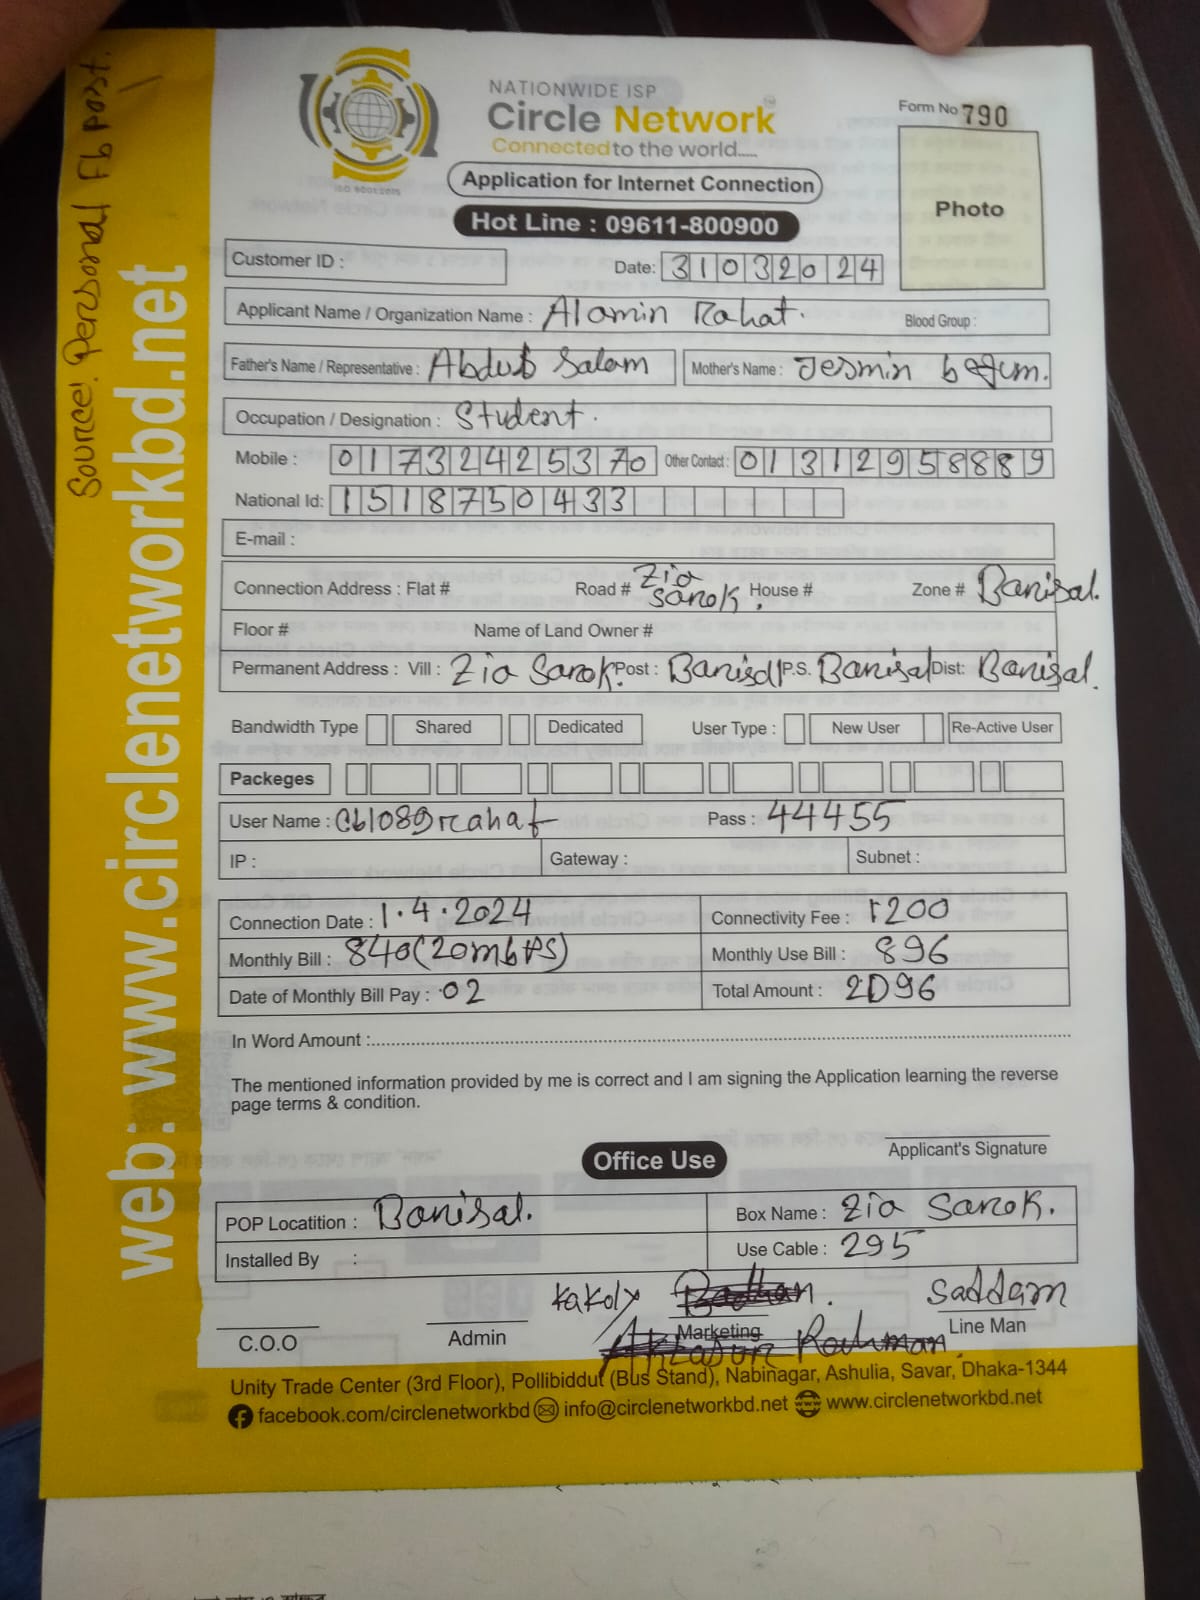 Source: Personal Fb post.
web: www.circlenetworkbd.net
ISO 9001:2015
NATIONWIDE ISP
Circle Network
Connected to the world.....
Application for Internet Connection
Hot Line : 09611-800900
Form No 790
Photo
Customer ID : Date: 31032024
Applicant Name / Organization Name : Alamin Rahat. Blood Group :
Father's Name / Representative : Abdus Salam Mother's Name : Jesmin begum.
Occupation / Designation : Student.
Mobile : 01732425370 Other Contact : 01312958889
National Id: 1518750433
E-mail :
Connection Address : Flat # Road # Zia Sarok. House # Zone # Barisal.
Floor # Name of Land Owner #
Permanent Address : Vill : Zia Sarok. Post : Barisal P.S. Barisal Dist: Barisal.
Bandwidth Type Shared Dedicated User Type : New User Re-Active User
Packeges
User Name : Cb1089rahat Pass : 44455
IP : Gateway : Subnet :
Connection Date : 1.4.2024 Connectivity Fee : 1200
Monthly Bill : 840(20mbps) Monthly Use Bill : 896
Date of Monthly Bill Pay : 02 Total Amount : 2096
In Word Amount :
The mentioned information provided by me is correct and I am signing the Application learning the reverse
page terms & condition.
Applicant's Signature
Office Use
POP Locatition : Barisal. Box Name : Zia Sarok.
Installed By : Use Cable : 295
Kakoly Saddam
C.O.O Admin Marketing Line Man
Rahman
Unity Trade Center (3rd Floor), Pollibiddut (Bus Stand), Nabinagar, Ashulia, Savar, Dhaka-1344
facebook.com/circlenetworkbd info@circlenetworkbd.net www.circlenetworkbd.net